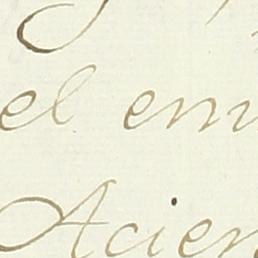 el env
Acien